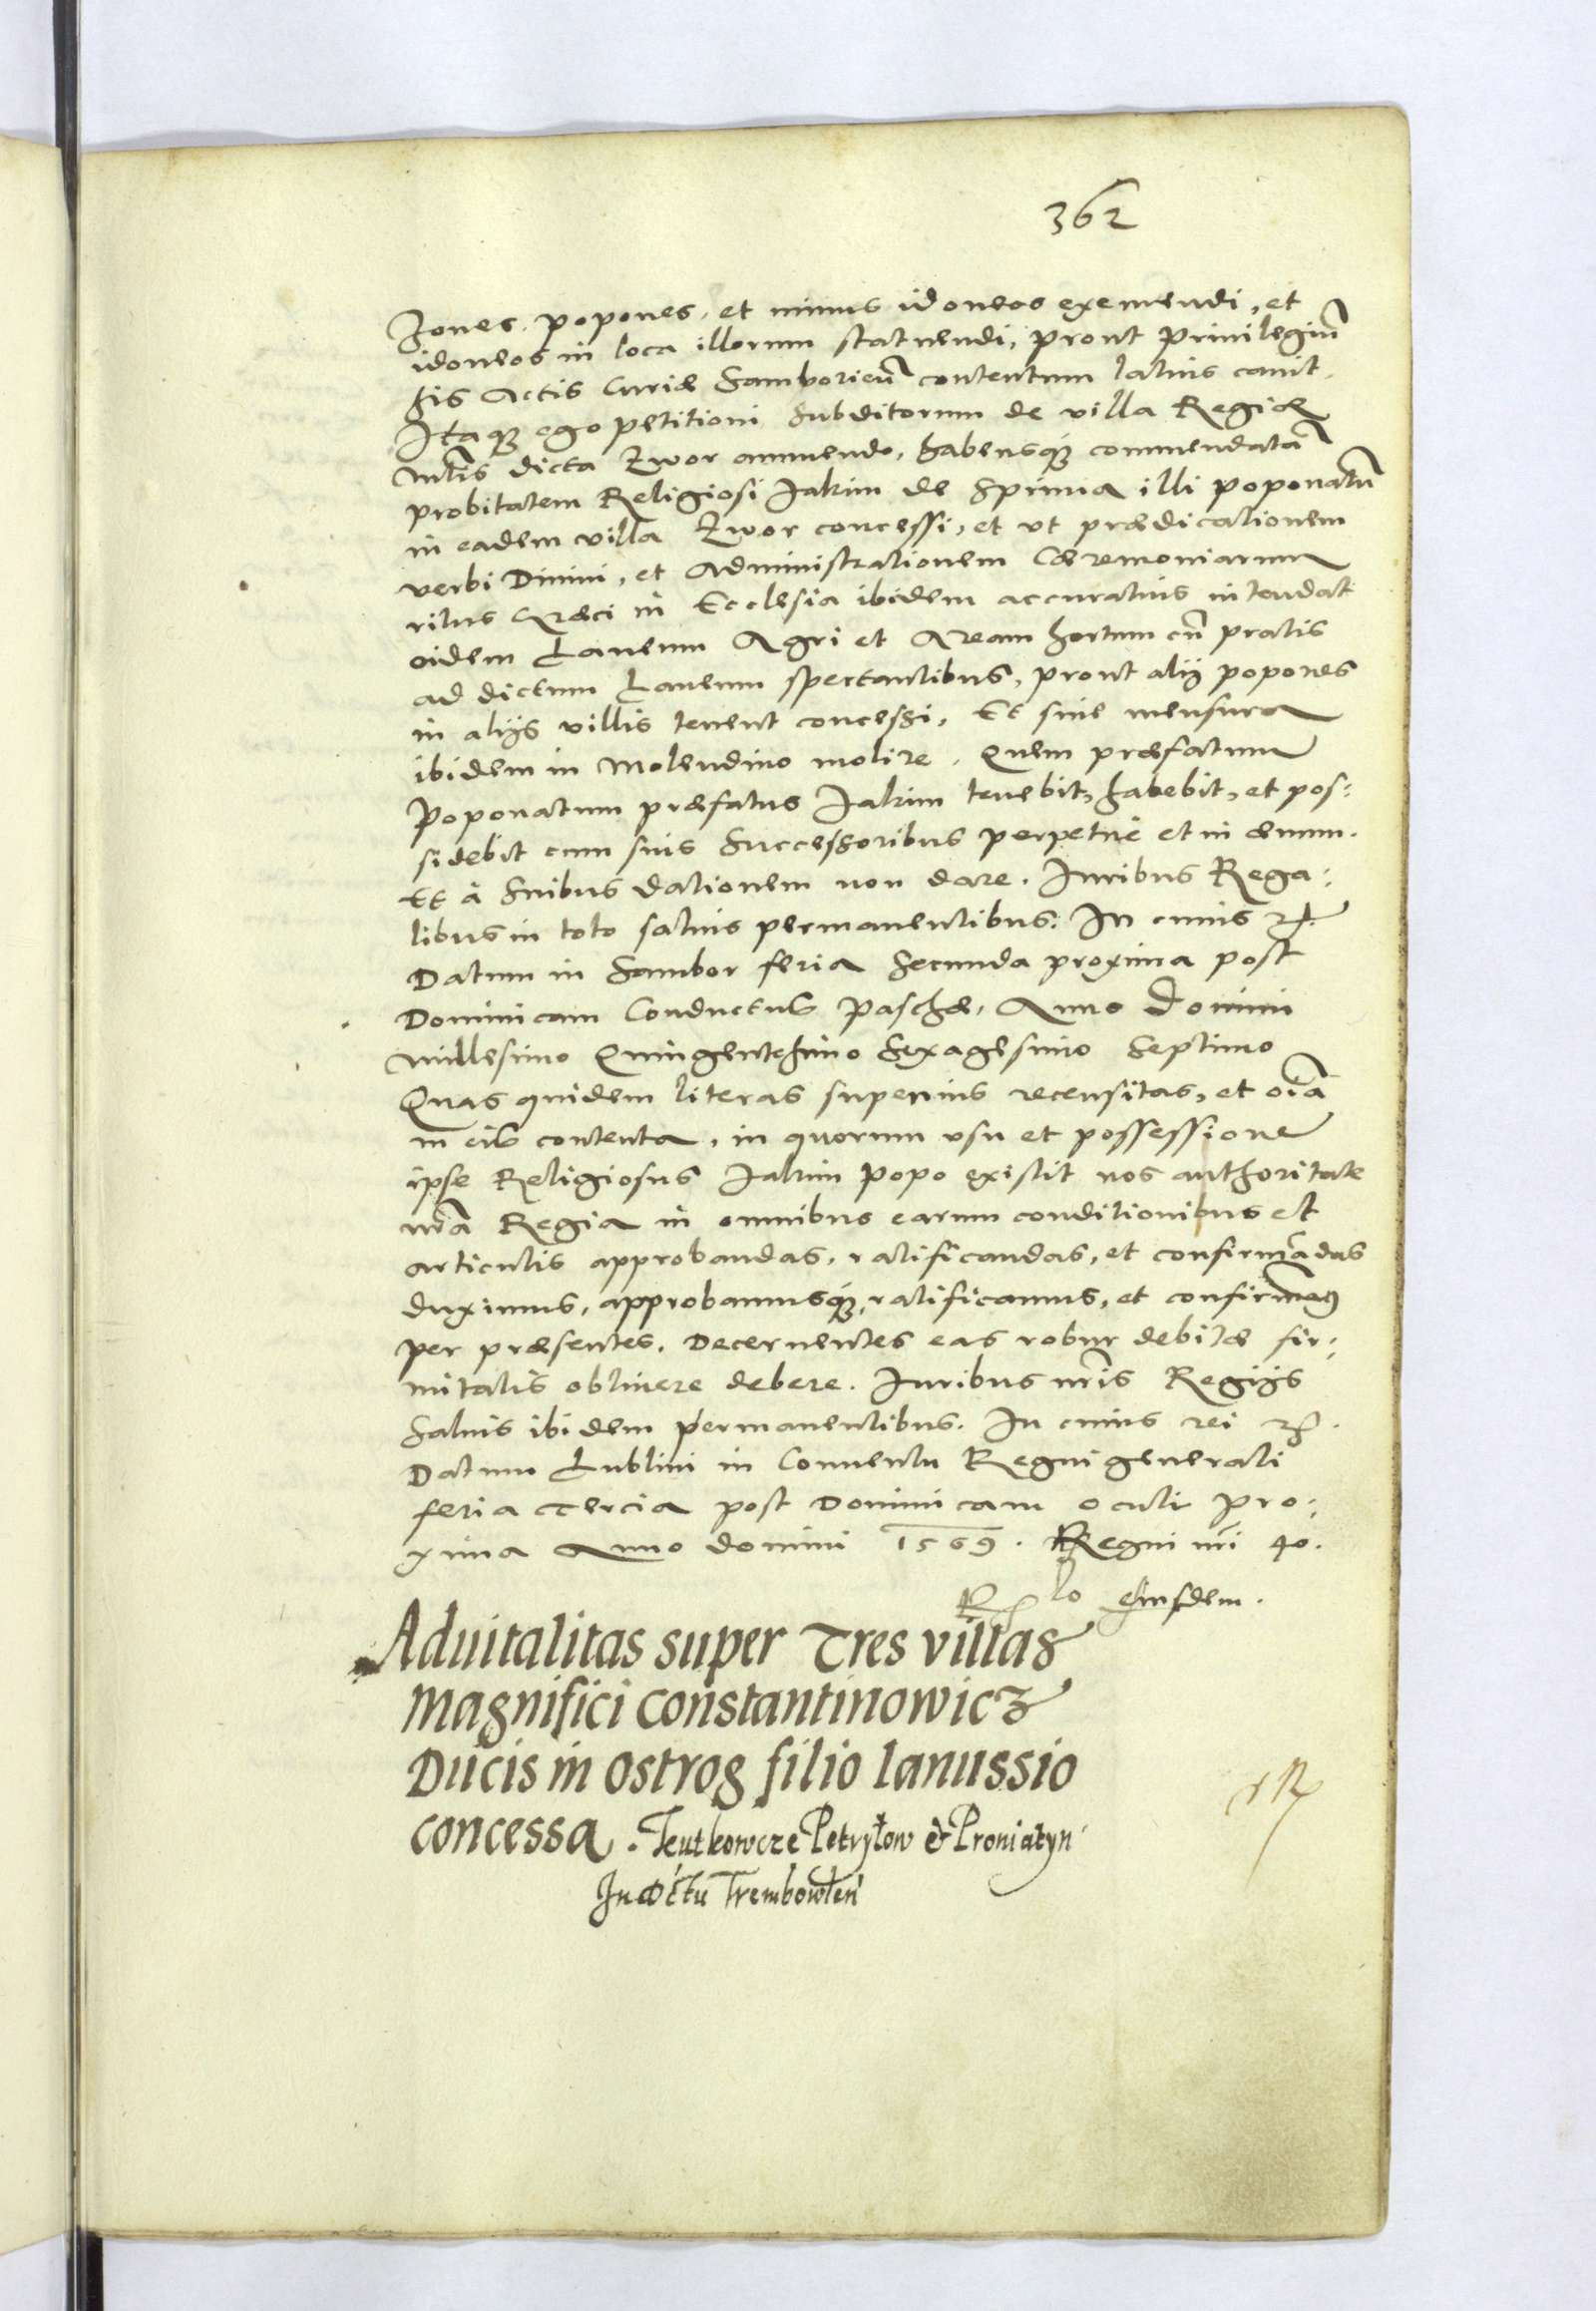 362
zones popones, et minus idoneos exemendi, et
idoneos in loca illorum statuendi, prout Priuilegiũ
his Actis Curiæ Samborieñ contentum latius cauit.
Itaqꝫ ego petitioni Subditorum de villa Regiæ
Mtis dicta Zwor annuendo, habensqꝫ commendatã
probitatem Religiosi Jakim de Sprinia illi poponatũ
in eadem villa Zwor concessi, et vt prædicationem
verbi Diuini, et Administrationem Cæremoniarum
ritus Græci in Ecclesia ibidem accuratius intendat
eidem Laneum Agri et Aream hortum cũ pratis
ad dictum Laneum spectantibus, prout alij popones
in alijs villis tenent concessi, Et sine mensura
ibidem in Molendino molire. Quem præfatum
Poponatum præfatus Jakim tenebit, habebit, et pos:
sidebit cum suis Successoribus perpetuè et in æuum.
Et à Suibus dationem non dare. Iuribus Rega:
libus in toto saluis permanentibus: In cuius rei
Datum in Sambor feria Secunda proxima post
Dominicam Conductus Paschæ, Anno Domini
Millesimo Quingentesimo Sexagesimo Septimo
Quas quidem literas superius recensitas, et oĩa
in eis contenta, in quorum vsu et possessione
ipse Religiosus Jakim Popo existit nos authoritate
nrã Regia in omnibus earum conditionibus et
articulis approbandas, ratificandas, et confirmãdas
duximus, approbamusqꝫ, ratificamus, et confirmamꝰ
per præsentes. Decernentes eas robur debitæ fir:
mitatis obtinere debere. Iuribus nr̃is Regijs
Saluis ibidem permanentibus. In cuius rei
Datum Lublini in Conuentu Regni generali
feria Tercia post Dominicam Oculi pro:
xima Anno domini 1569. Regni nr̃i 40.
Rlo eiusdem.
Aduitalitas super Tres villas
Magnifici Constantinowicz
Ducis in Ostrog filio Ianussio
concessa. Teutkowcze Petryłow & Proniatyn
In Trembowłeñ